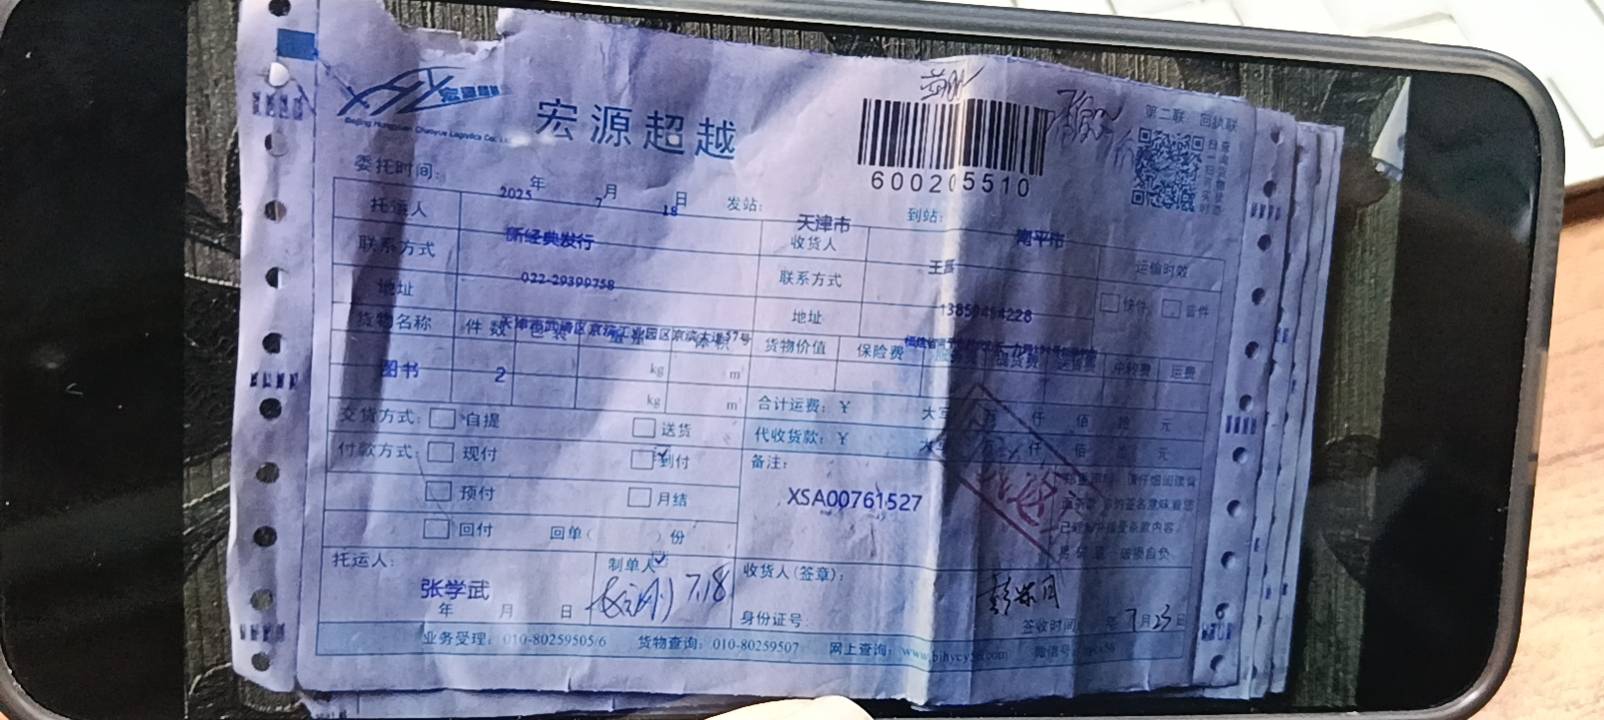 宏源超越
Beijing Hongyuan Chaoyue Logistics Co.
宏源超越
600205510
第二联：回执联
委托时间：
2025年7月18日
发站：
天津市
到站：
南平市
托运人
新经典发行
收货人
联系方式
022-29399758
联系方式
运输时效
地址
天津市武清区京滨工业园区京滨大道57号
地址
快件
普件
货物名称
件数
包装
重量
体积
货物价值
保险费
运费
图书
2
kg
m
kg
m
合计运费：¥
大写
万
仟
佰
拾
元
交货方式：
自提
送货
代收货款：¥
大写
万
仟
佰
元
付款方式：
现付
到付
备注：
预付
月结
XSA00761527
回付
回单（ ）份
托运人：
张学武
年 月 日
制单人
7.18
收货人(签章)：
身份证号
签收时间：
年7月23日
业务受理：010-80259505/6
货物查询：010-80259507
网上查询：